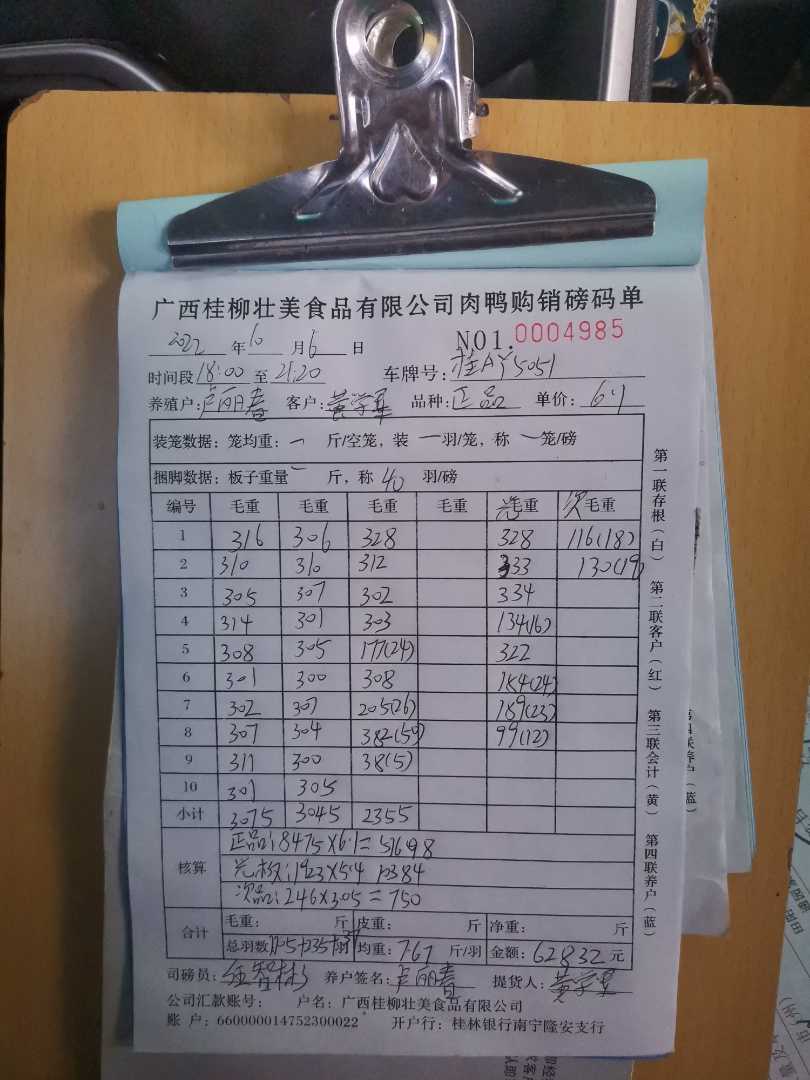 广西桂柳壮美食品有限公司肉鸭购销磅码单
2022 年 10 月 6 日 NO1. 0004985
时间段 18:00 至 21:20 车牌号: 桂A 5051
养殖户: 卢丽春 客户: 黄学 品种: 正品 单价: 6.1
装笼数据: 笼均重: 一 斤/空笼, 装 一 羽/笼, 称 一 笼/磅
捆脚数据: 板子重量 一 斤, 称 40 羽/磅
编号 毛重 毛重 毛重 毛重 毛重 次 毛重
1 316 306 328 328 116(18)
2 310 310 312 333 130(19)
3 305 307 302 334
4 314 301 303 134(16)
5 308 305 177(24) 322
6 301 300 308 184(24)
7 302 307 205(26) 189(23)
8 307 304 382(50) 99(12)
9 311 300 38(5)
10 301 305
小计 3075 3045 2355
核算
正品:8475×6.1=51698
:1923×5.4 10384
次品:246×3.05=750
合计 毛重: 斤 皮重: 斤 净重: 斤
总羽数 1105+235+37 羽 均重: 7.67 斤/羽 金额: 62832 元
司磅员: 养户签名: 卢丽春 提货人: 黄学
公司汇款账号: 户名: 广西桂柳壮美食品有限公司
账 户: 660000014752300022 开户行: 桂林银行南宁隆安支行
第一联存根(白) 第二联客户(红) 第三联会计(黄) 第四联养户(蓝)